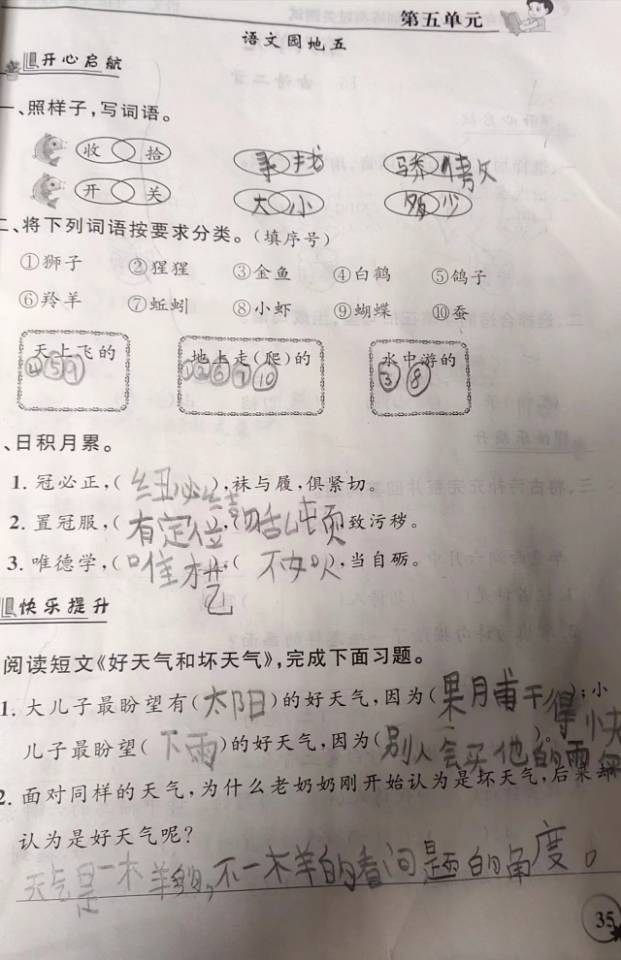 第五单元
语文园地五
开心启航
一、照样子,写词语。
收 拾 寻 找 骄 傲
开 关 大 小 多 少
二、将下列词语按要求分类。(填序号)
①狮子 ②猩猩 ③金鱼 ④白鹤 ⑤鸽子
⑥羚羊 ⑦蚯蚓 ⑧小虾 ⑨蝴蝶 ⑩蚕
天上飞的 地上走(爬)的 水中游的
④⑤⑨ ①②⑥⑦⑩ ③⑧
、日积月累。
1. 冠必正,(纽必结),袜与履,俱紧切。
2. 置冠服,(有定位),(勿乱顿)致污秽。
3. 唯德学,(唯才艺)(不如人),当自砺。
快乐提升
阅读短文《好天气和坏天气》,完成下面习题。
1. 大儿子最盼望有(太阳)的好天气,因为(果脯干得快);小
儿子最盼望(下雨)的好天气,因为(别人会买他的雨伞)。
2. 面对同样的天气,为什么老奶奶刚开始认为是坏天气,后来却
认为是好天气呢?
天气是一木羊的,不一木羊的看问题的角度。
35